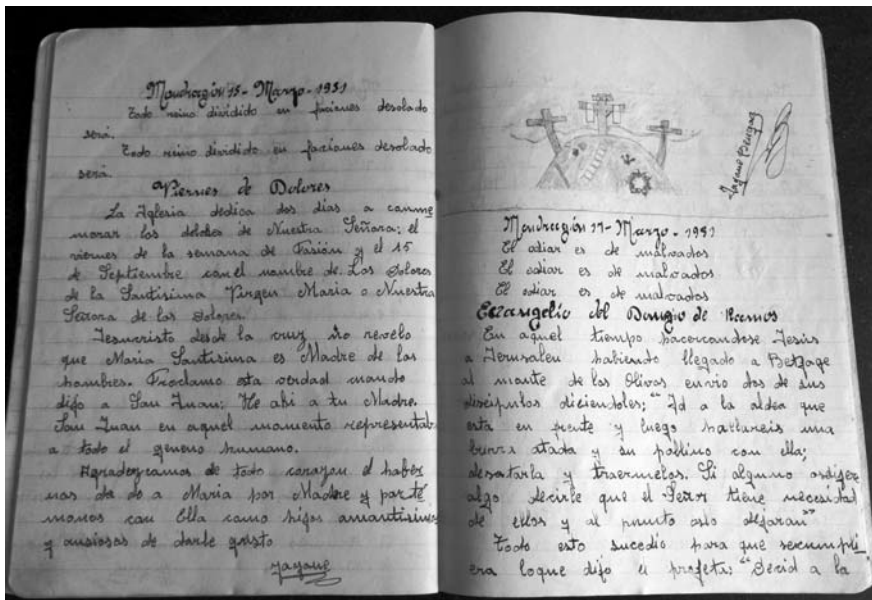 Mondragón 15-Marzo-1951
Todo reino dividido en faciones desolado
será.
Todo reino dividido en faciones desolado
será.
Viernes de Dolores
La Iglesia dedica dos dias a conme
morar los dolores de Nuestra Señora; el
viernes de la semana de Pasión y el 15
de Septiembre con el nombre de Los Dolores
de la Santisima Virgen Maria o Nuestra
Señora de los Dolores.
Jesucristo desde la cruz nos revelo
que Maria Santisima es Madre de los
hombres. Proclamo esta verdad cuando
dijo a San Juan: He ahi a tu Madre.
San Juan en aquel momento representab
a todo el genero humano.
Agradezcamos de todo corazon el haber
nos da do a Maria por Madre y porte
monos con Ella como hijos amantisimos
y ansiosos de darle gusto
Mondragón 17-Marzo-1951
El odiar es de malvados
El odiar es de malvados
El odiar es de malvados
Evangelio del Domgio de Ramos
En aquel tiempo hacercandose Jesús
a Jerusalen habiendo llegado a Betfage
al monte de los Olivos envio dos de sus
discipulos diciendoles: "Id a la aldea que
esta en frente y luego hallareis una
burra atada y su pollino con ella;
desatarla y traermelos. Si alguno osdijere
algo decirle que el Señor tiene necesidad
de ellos y al punto oslo dejaran"
Todo esto sucedio para que secumpli
era loque dijo el profeta: "Decid a la